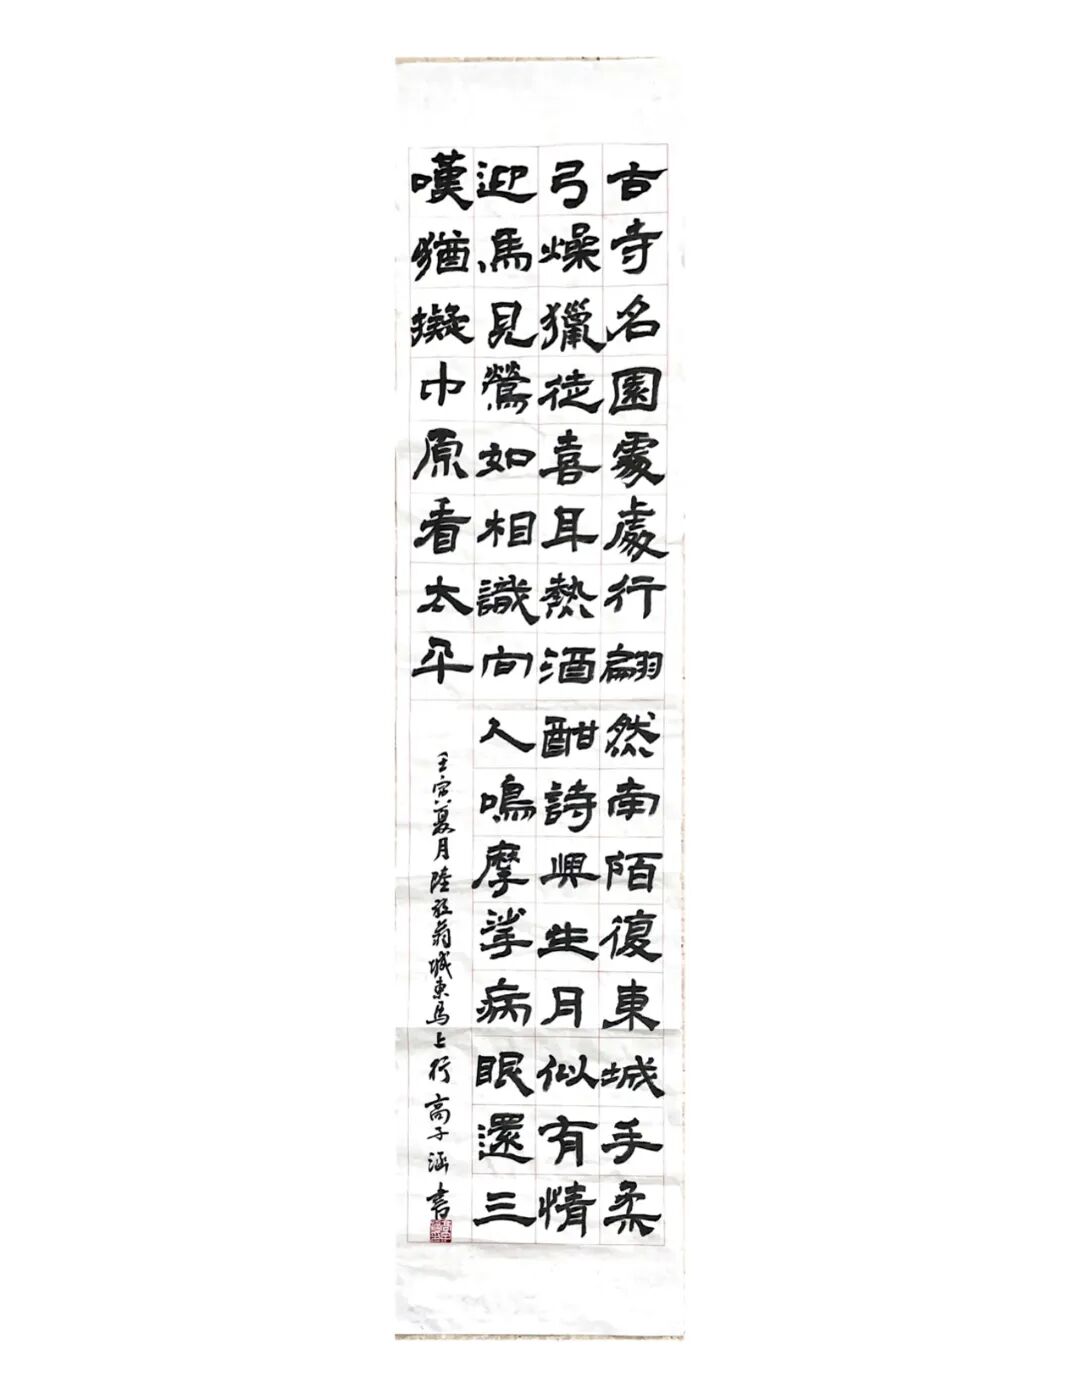 古寺名園處處行翩然南陌復東城手柔
弓燥獵徒喜耳熱酒酣詩興生月似有情
迎馬見鶯如相識向人鳴摩挲病眼還三
嘆猶擬中原看太平
壬寅夏月陸放翁城東馬上行高子涵書